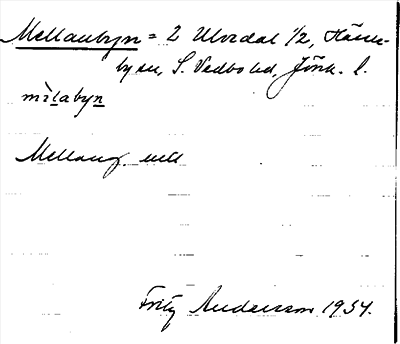 Mellanbyn = 2 Ulvsdal 1/2, Hä
byn, S. Vedbo hd, Jönk. l.
mìlabyn
Mellang. till
Fritz Andersson 1934.